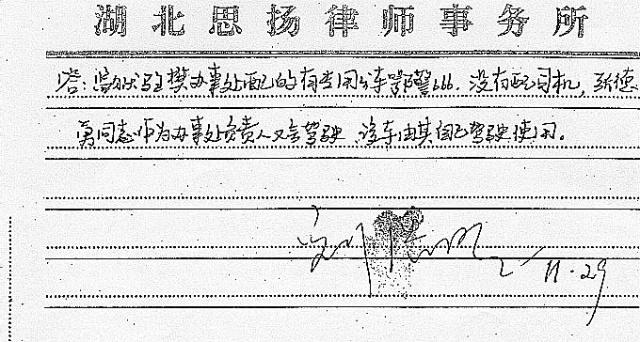 湖北思扬律师事务所
答：当时驻樊办事处配的有专用公车鄂警666，没有配司机，张德
勇同志作为办事处负责人又会驾驶，该车由其自己驾驶使用。
11.29